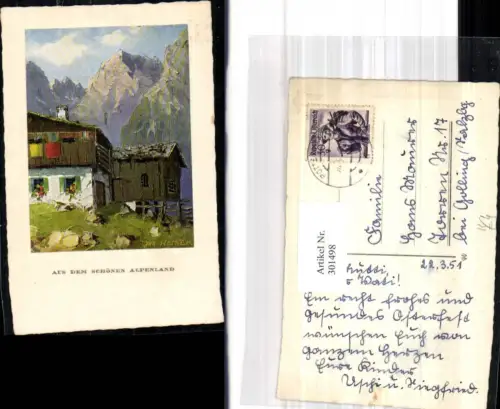 AUS DEM SCHÖNEN ALPENLAND
Artikel Nr.
301498
Familie
Hans Maurer
Torren Nr. 17
bei Golling/Salzbg
22.3.51
Mutti,
u Vati!
Ein recht frohes und
gesundes Osterfest
wünschen Euch von
ganzem Herzen
Eure Kinder
Uschi u. Siegfried.